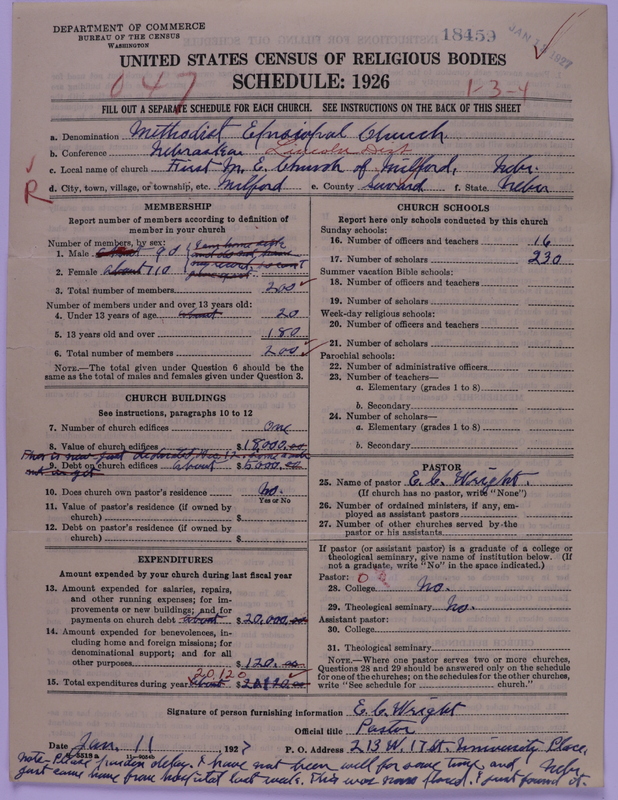 DEPARTMENT OF COMMERCE
BUREAU OF THE CENSUS
WASHINGTON
18459
JAN 1927
UNITED STATES CENSUS OF RELIGIOUS BODIES
SCHEDULE: 1926
047
1-3-4
FILL OUT A SEPARATE SCHEDULE FOR EACH CHURCH. SEE INSTRUCTIONS ON THE BACK OF THIS SHEET
a. Denomination Methodist Episcopal Church
b. Conference Nebraska Lincoln Dist
c. Local name of church First M. E. Church of Milford, Nebr.
R
d. City, town, village, or township, etc. Milford e. County Seward f. State Nebr
MEMBERSHIP
Report number of members according to definition of member in your church
Number of members, by sex:
1. Male 90
2. Female about 110
3. Total number of members 200
Number of members under and over 13 years old:
4. Under 13 years of age about 20
5. 13 years old and over 180
6. Total number of members 200
NOTE.—The total given under Question 6 should be the same as the total of males and females given under Question 3.
CHURCH BUILDINGS
See instructions, paragraphs 10 to 12
7. Number of church edifices One
8. Value of church edifices $18,000.00
This is new just dedicated
9. Debt on church edifices about $5000.00
10. Does church own pastor's residence No.
Yes or No
11. Value of pastor's residence (if owned by church) $
12. Debt on pastor's residence (if owned by church) $
EXPENDITURES
Amount expended by your church during last fiscal year
13. Amount expended for salaries, repairs, and other running expenses; for improvements or new buildings; and for payments on church debt about $20,000.00
14. Amount expended for benevolences, including home and foreign missions; for denominational support; and for all other purposes $120.00
20,120
15. Total expenditures during year about $
CHURCH SCHOOLS
Report here only schools conducted by this church
Sunday schools:
16. Number of officers and teachers 16
17. Number of scholars 230
Summer vacation Bible schools:
18. Number of officers and teachers
19. Number of scholars
Week-day religious schools:
20. Number of officers and teachers
21. Number of scholars
Parochial schools:
22. Number of administrative officers
23. Number of teachers—
a. Elementary (grades 1 to 8)
b. Secondary
24. Number of scholars—
a. Elementary (grades 1 to 8)
b. Secondary
PASTOR
25. Name of pastor E. C. Wright.
(If church has no pastor, write "None")
26. Number of ordained ministers, if any, employed as assistant pastors
27. Number of other churches served by the pastor or his assistants
If pastor (or assistant pastor) is a graduate of a college or theological seminary, give name of institution below. (If not a graduate, write "No" in the space indicated.)
Pastor: 0
28. College No.
29. Theological seminary No.
Assistant pastor:
30. College
31. Theological seminary
NOTE.—Where one pastor serves two or more churches, Questions 28 and 29 should be answered only on the schedule for one of the churches; on the schedules for the other churches, write "See schedule for church."
Signature of person furnishing information E. C. Wright
Official title Pastor
Date Jan. 11, 1927 P. O. Address 213 W. 17 St. University Place, Nebr
Note- Please pardon delay. I have not been well for some time and
just came home from hospital last week. This was I just found it.